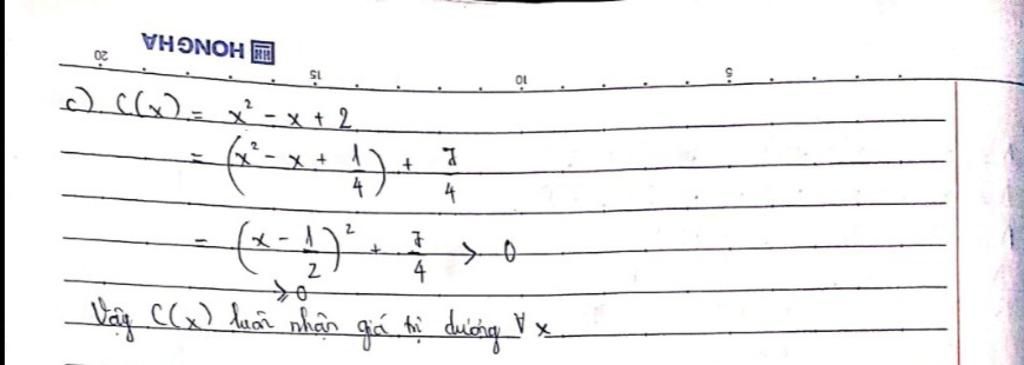 HONG HA
20 15 10 5
c) C(x) = x² - x + 2
= (x² - x + 1/4) + 7/4
= (x - 1/2)² + 7/4 > 0
⩾ 0
Vậy C(x) luôn nhận giá trị dương ∀ x